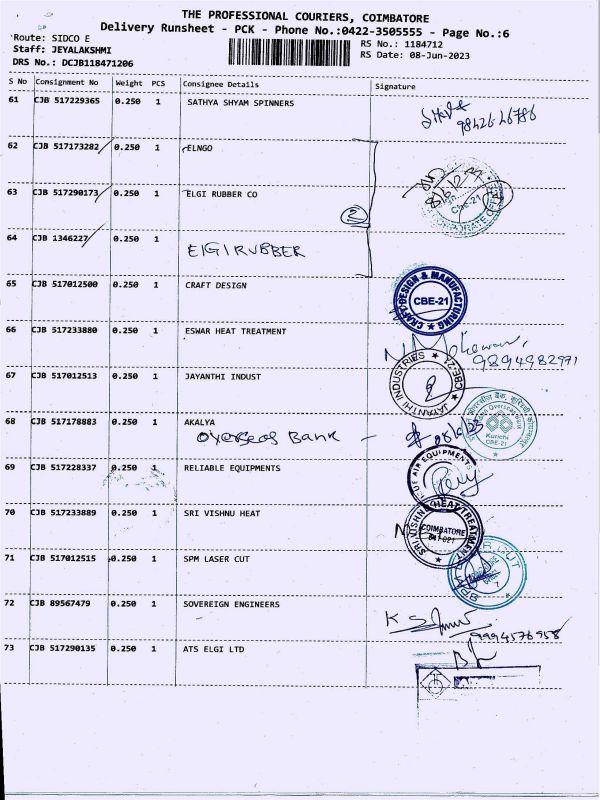 THE PROFESSIONAL COURIERS, COIMBATORE
Delivery Runsheet - PCK - Phone No.:0422-3505555 - Page No.:6
Route: SIDCO E
Staff: JEYALAKSHMI
DRS No.: DCJB118471206
RS No.: 1184712
RS Date: 08-Jun-2023
S No Consignment No Weight PCS Consignee Details Signature
61 CJB 517229365 0.250 1 SATHYA SHYAM SPINNERS
62 CJB 517173282 0.250 1 ELNGO
63 CJB 517290173 0.250 1 ELGI RUBBER CO
CBE-21
2
64 CJB 1346227 0.250 1
ElGI RUBBER
65 CJB 517012500 0.250 1 CRAFT DESIGN
CRAFT DESIGN & MANUFACTURING
CBE-21
66 CJB 517233880 0.250 1 ESWAR HEAT TREATMENT
9894982971
67 CJB 517012513 0.250 1 JAYANTHI INDUST
JAYANTHI INDUSTRIES CBE-21
68 CJB 517178883 0.250 1 AKALYA
Overseas Bank -
Indian Overseas Bank
Kurichi
CBE-21
69 CJB 517228337 0.250 1 RELIABLE EQUIPMENTS
AIR EQUIPMENTS
70 CJB 517233889 0.250 1 SRI VISHNU HEAT
SRI VISHNU HEAT TREATMENT
COIMBATORE
641 021
71 CJB 517012515 0.250 1 SPM LASER CUT
72 CJB 89567479 0.250 1 SOVEREIGN ENGINEERS
9994576958
73 CJB 517290135 0.250 1 ATS ELGI LTD